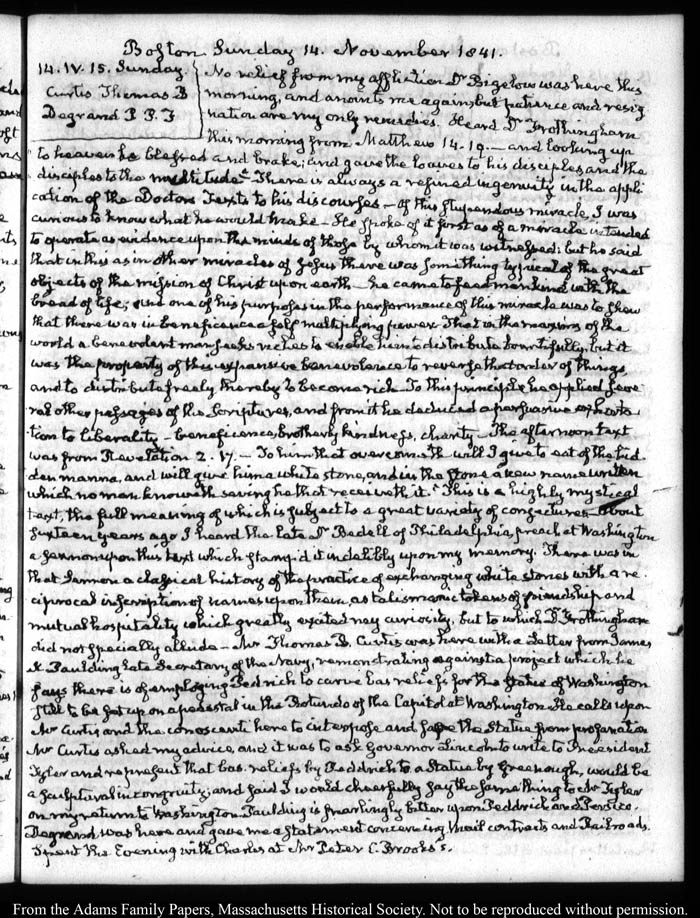 Boston Sunday 14. November 1841.
14. IV. 15. Sunday
Curtis Thomas B
Degrand P. P. F
No relief from my affliction Dr Bigelow was here this
morning, and anoints me again, but patience and resig
nation are my only remedies. Heard Dr Frothingham
this morning from Matthew 14. 19. — and looking up
to heaven he blessed and brake; and gave the loaves to his disciples and the
disciples to the multitude." There is always a refined ingenuity in the appli
cation of the Doctors Texts to his discourses — of this stupendous miracle, I was
curious to know what he would make — He spoke of it first as of a miracle intended
to operate as evidence upon the minds of those by whom it was witnessed: but he said
that in this as in other miracles of Jesus there was something typical of the great
objects of the mission of Christ upon earth — he came to feed mankind with the
bread of life; and one of his purposes in the performance of this miracle was to show
that there was in beneficence a self multiplying power. That in the maxims of the
world a benevolent man seeks riches to enable him to distribute bountifully, but it
was the property of this expansive benevolence to reverse that order of things,
and to distribute freely thereby to become rich. To this principle he applied seve
ral other passages of the Scriptures, and from it he deduced a persuasive exhorta
tion to liberality — beneficence, brotherly kindness, charity — The afternoon text
was from Revelation 2. 17. — To him that overcometh will I give to eat of the hid
den manna, and will give him a white stone, and in the stone a new name written
which no man knoweth saving he that receiveth it." This is a highly mystical
text, the full meaning of which is subject to a great variety of conjectures — about
sixteen years ago I heard the late Dr Bedell of Philadelphia, preach at Washington
a sermon upon this text which stamp'd it indelibly upon my memory. There was in
that Sermon a classical history of the practice of exchanging white stones with a re
ciprocal inscription of names upon them, as talismanic tokens of friendship and
mutual hospitality which greatly excited my curiosity, but to which Dr Frothingham
did not specially allude — Mr Thomas B. Curtis was here with a Letter from James
K. Paulding late Secretary of the Navy, remonstrating against a project which he
says there is of employing Pedrich to carve bas reliefs for the statue of Washington
still to be set up on a pedestal in the Rotundo of the Capitol at Washington. He calls upon
Mr Curtis and the conoscenti here to interpose and save the Statue from profanation
Mr Curtis asked my advice, and it was to ask Governor Lincoln to write to President
Tyler and represent that bas. reliefs by Peddrich to a Statue by Greenough, would be
a sculptural incongruity; and said I would cheerfully say the same thing to Mr Tyler
on my return to Washington. Paulding is snarlingly bitter upon Peddrick and Persico.
Degrand was here and gave me a statement concerning Mail contracts and Railroads.
I spent the Evening with Charles at Mr Peter C. Brooks's.
From the Adams Family Papers, Massachusetts Historical Society. Not to be reproduced without permission.